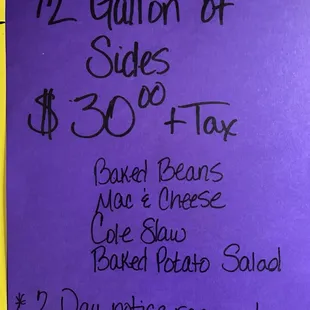 1/2 Gallon of
Sides
$30.00 + Tax
Baked Beans
Mac & Cheese
Cole Slaw
Baked Potato Salad
* 2 Day notice